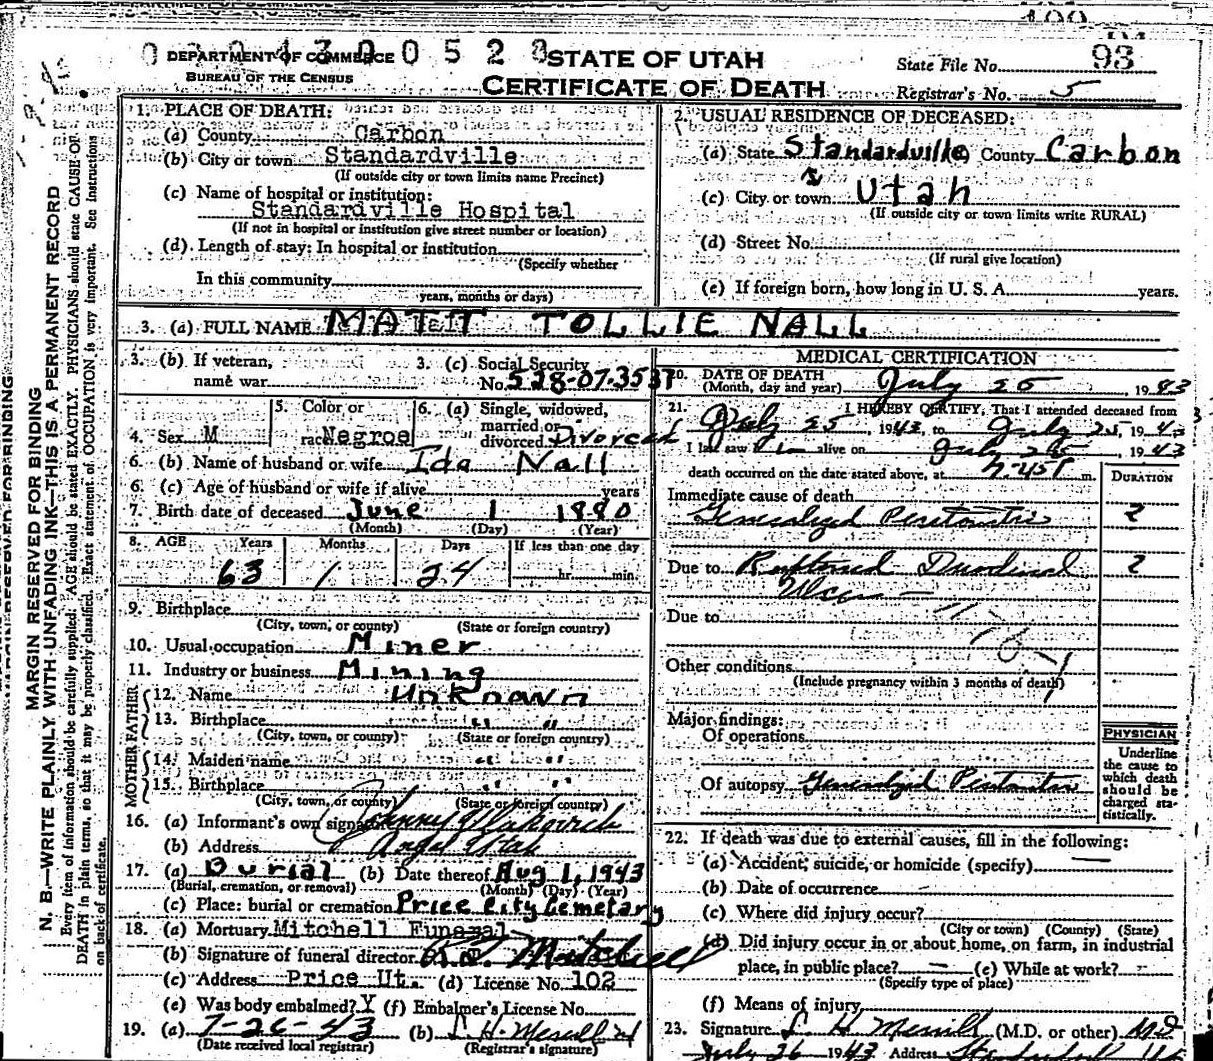 0 3 0 4 3 0 0 5 2 8
DEPARTMENT OF COMMERCE
BUREAU OF THE CENSUS
STATE OF UTAH
CERTIFICATE OF DEATH
State File No. 93
Registrar's No. 5
MARGIN RESERVED FOR BINDING
N. B.—WRITE PLAINLY WITH UNFADING INK—THIS IS A PERMANENT RECORD
Every item of information should be carefully supplied. AGE should be stated EXACTLY. PHYSICIANS should state CAUSE OF
DEATH in plain terms, so that it may be properly classified. Exact statement of OCCUPATION is very important. See instructions
on back of certificate.
1. PLACE OF DEATH:
(a) County Carbon
(b) City or town Standardville
(If outside city or town limits name Precinct)
(c) Name of hospital or institution:
Standardville Hospital
(If not in hospital or institution give street number or location)
(d) Length of stay: In hospital or institution
(Specify whether
In this community
years, months or days)
2. USUAL RESIDENCE OF DECEASED:
(a) State Standardville County Carbon
(c) City or town Utah
(If outside city or town limits write RURAL)
(d) Street No.
(If rural give location)
(e) If foreign born, how long in U. S. A. years.
3. (a) FULL NAME MATT TOLLIE NALL
3. (b) If veteran, name war
3. (c) Social Security No. 528-07-3537
4. Sex M
5. Color or race Negroe
6. (a) Single, widowed, married or divorced Divorced
6. (b) Name of husband or wife Ida Nall
6. (c) Age of husband or wife if alive years
7. Birth date of deceased June 1 1880
(Month) (Day) (Year)
8. AGE Years Months Days If less than one day
63 1 24 hr. min.
9. Birthplace
(City, town, or county) (State or foreign country)
10. Usual occupation Miner
11. Industry or business Mining
FATHER
12. Name Unknown
13. Birthplace " "
(City, town, or county) (State or foreign country)
MOTHER
14. Maiden name " "
15. Birthplace " "
(City, town, or county) (State or foreign country)
16. (a) Informant's own signature
(b) Address Utah
17. (a) Burial (b) Date thereof Aug 1, 1943
(Burial, cremation, or removal) (Month) (Day) (Year)
(c) Place: burial or cremation Price City Cemetary
18. (a) Mortuary Mitchell Funeral
(b) Signature of funeral director Mitchell
(c) Address Price Ut. (d) License No. 102
(e) Was body embalmed? Y (f) Embalmer's License No.
19. (a) 7-26-43 (b) L H. Merrill
(Date received local registrar) (Registrar's signature)
MEDICAL CERTIFICATION
20. DATE OF DEATH
(Month, day and year) July 25, 1943
21. I HEREBY CERTIFY, That I attended deceased from
July 25, 1943, to July 25, 1943
I last saw h alive on July 25, 1943
death occurred on the date stated above, at m.
DURATION
Immediate cause of death
Generalized Peritonitis 2
Due to Ruptured Duodenal 2
Ulcer
Due to
Other conditions
(Include pregnancy within 3 months of death)
Major findings:
Of operations
Of autopsy Generalized Peritonitis
PHYSICIAN
Underline
the cause to
which death
should be
charged sta-
tistically.
22. If death was due to external causes, fill in the following:
(a) Accident, suicide, or homicide (specify) —
(b) Date of occurrence –
(c) Where did injury occur?
(City or town) (County) (State)
(d) Did injury occur in or about home, on farm, in industrial
place, in public place? – (e) While at work? –
(Specify type of place)
(f) Means of injury
23. Signature L H Merrill (M.D. or other) MD
July 26 1943 Address